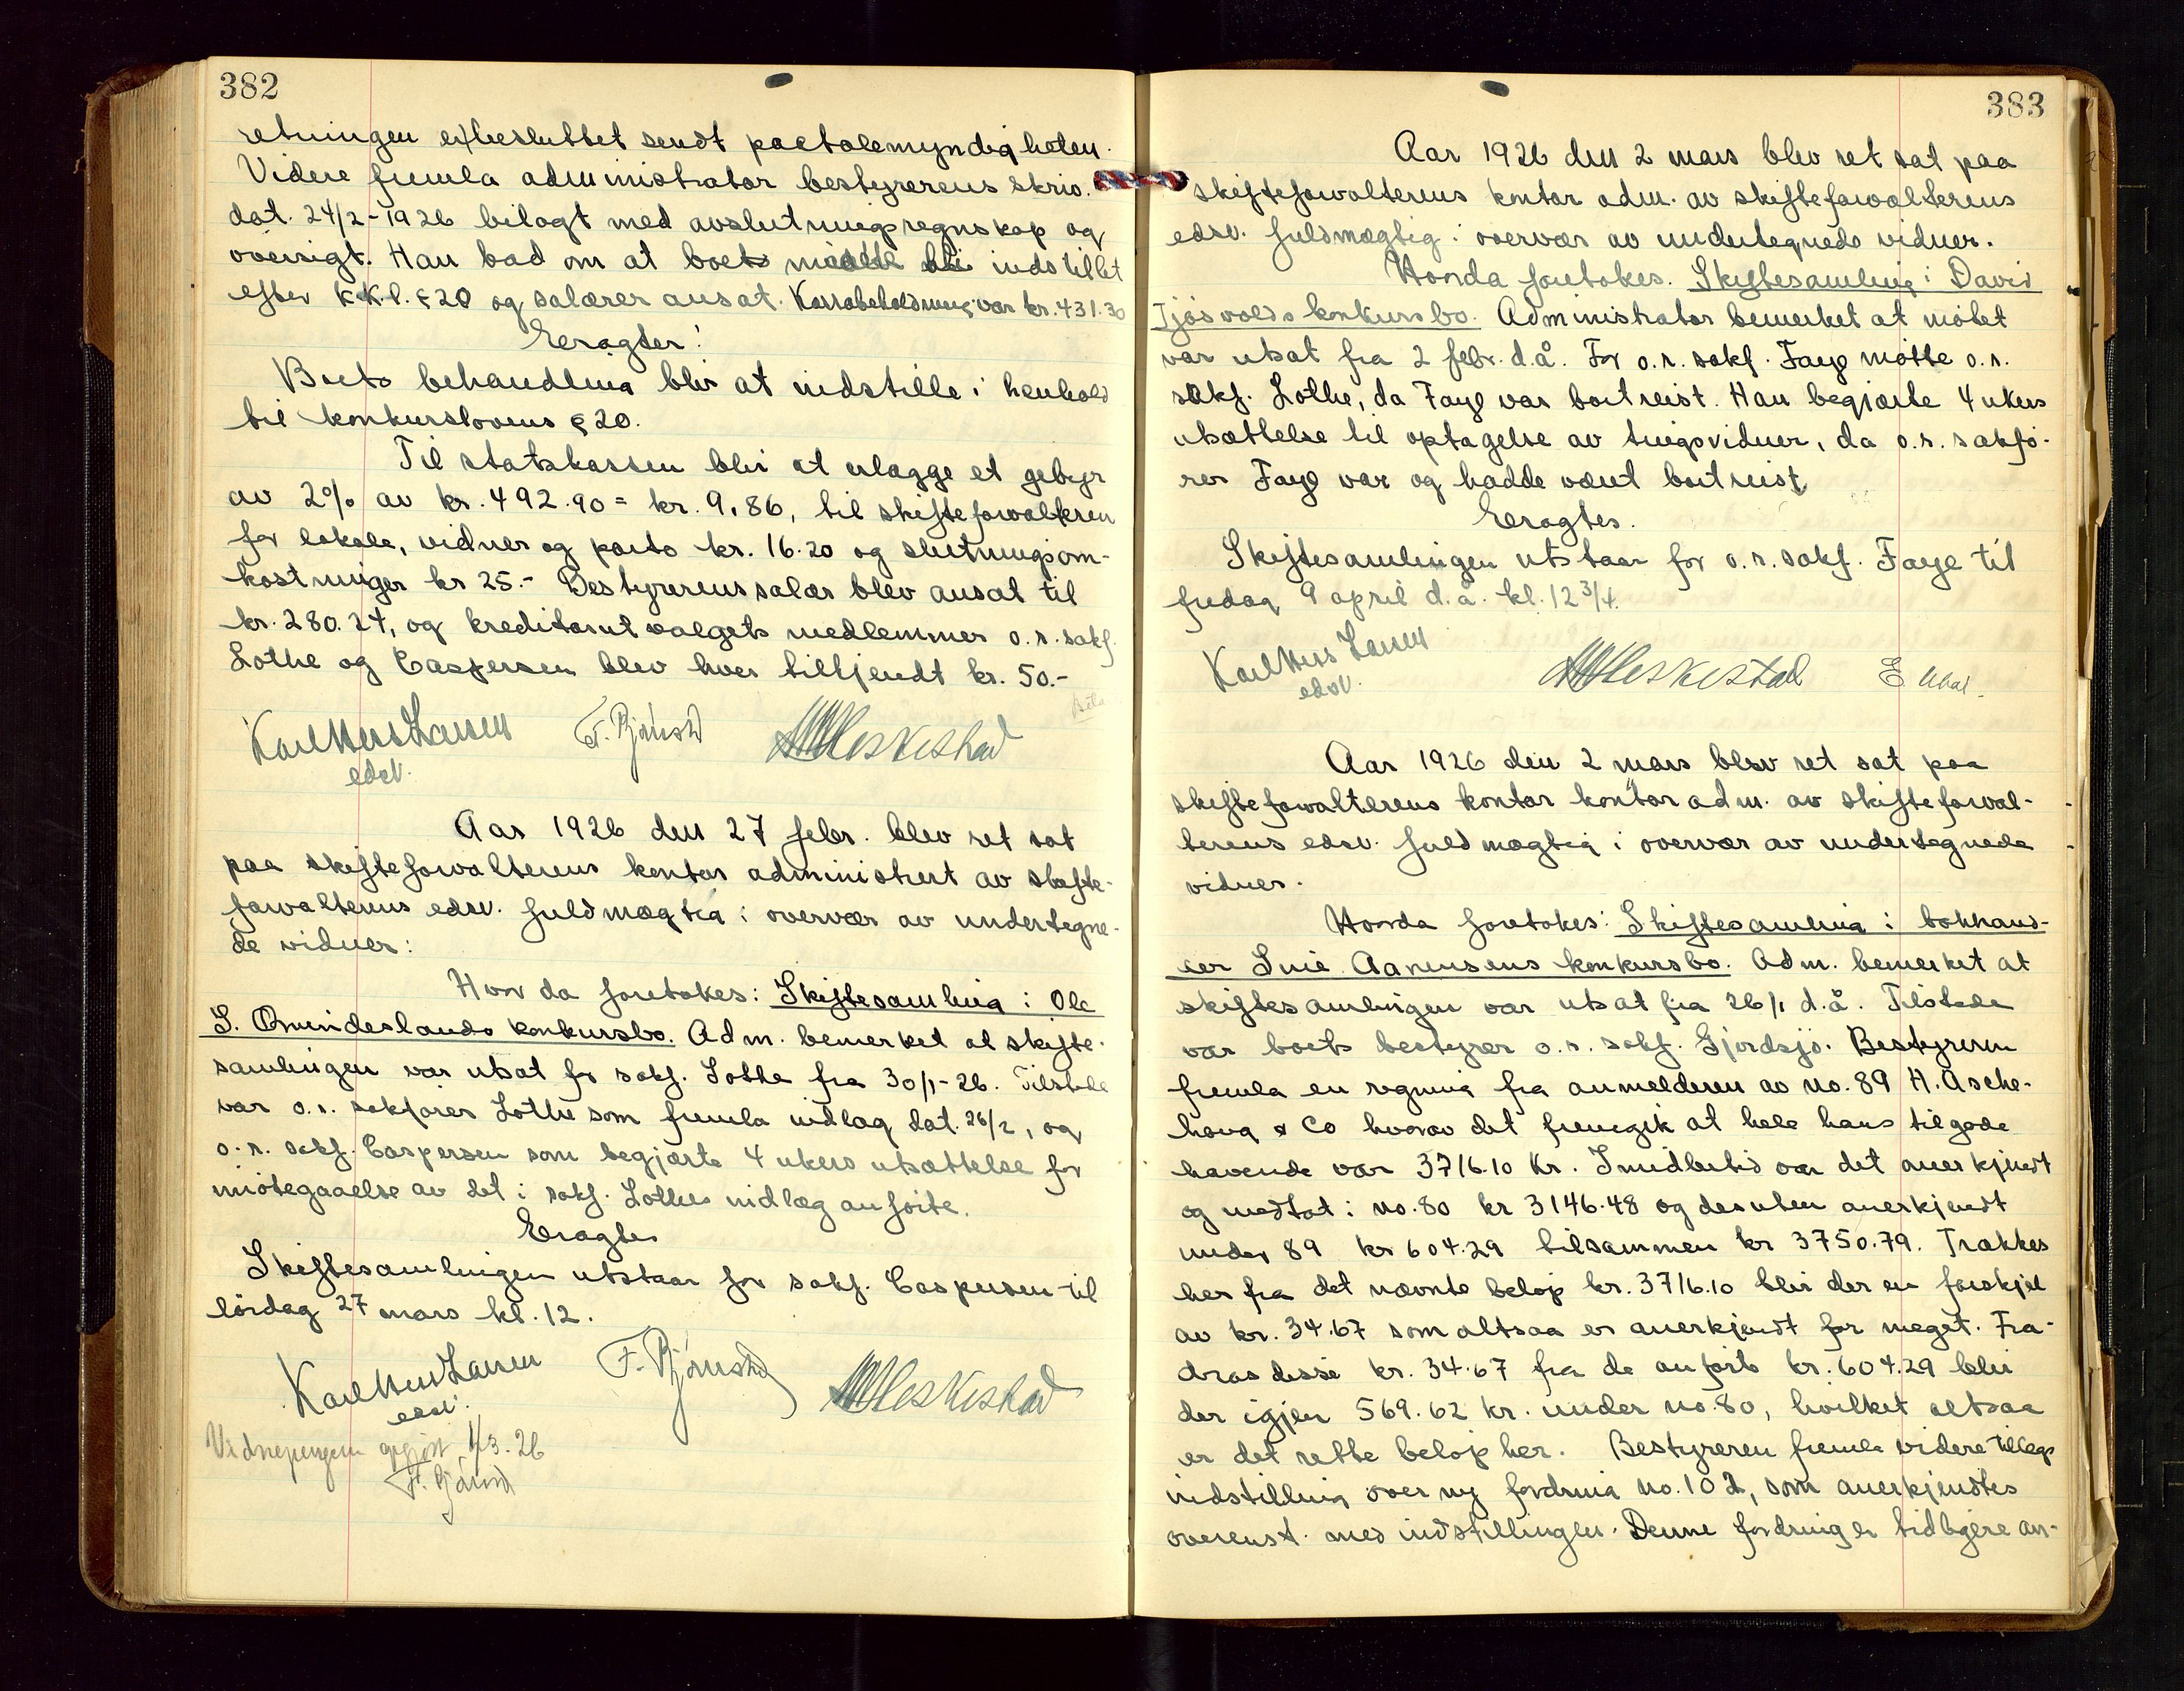 382
retningen er besluttet sendt paatalemyndigheten.
Videre fremla administrator bestyrerens skriv.
dat. 24/2-1926 bilagt med avslutningsregnskap og
oversigt. Han bad om at boets maatte bli indstillet
efter K.K.l. § 20 og salærer ansat. Kassabeholdning var kr. 431.30
Eragtet:
Boets behandling blir at indstille i henhold
til konkurslovens § 20.
Til statskassen blir at erlægge et gebyr
av 2% av kr. 492.90 = kr. 9,86, til skifteforvalteren
for lokale, vidner og porto kr. 16.20 og slutningsom-
kostninger kr 25.- Bestyrerens salær blev ansat til
kr. 280.24, og kreditorutvalgets medlemmer o.r. sakf.
Lothe og Caspersen blev hver tilkjendt kr. 50.-
Karl Larsen F. Bjørnstad Meskestad
edsv.
Aar 1926 den 27 febr. blev ret sat
paa skifteforvalterens kontor administrert av skifte-
forvalterens edsv. fuldmægtig i overvær av undertegne-
de vidner:
Hvor da foretokes: Skiftesamling i Ole
S. Omundeslands konkursbo. Adm. bemerket at skifte-
samlingen var utsat for sakf. Lothe fra 30/1-26. Tilstede
var o.r. sakfører Lothe som fremla indlæg dat. 26/2, og
o.r. sakf. Caspersen som begjærte 4 ukers utsættelse for
imøtegaaelse av det i sakf. Lothes indlæg anførte.
Eragtes
Skiftesamlingen utstaar for sakf. Caspersen til
lördag 27 mars kl. 12.
Karl Larsen F. Bjørnstad Meskestad
edsv.
Vidnepengene opgjort 1/3.26
F. Bjørnstad
383
Aar 1926 den 2 mars blev ret sat paa
skifteforvalterens kontor adm. av skifteforvalterens
edsv. fuldmægtig i overvær av undertegnede vidner.
Hvorda foretokes. Skiftesamling i David
Tjøsvolds konkursbo. Administrator bemerket at møtet
var utsat fra 2 febr. d.å. For o.r. sakf. Faye møtte o.r.
sakf. Lothe, da Faye var bortreist. Han begjærte 4 ukers
utsættelse til optagelse av tingsvidner, da o.r. sakfö-
rer Faye var og hadde været bortreist.
Eragtes.
Skiftesamlingen utstaar for o.r. sakf. Faye til
fredag 9 april d.å. kl. 12 3/4.
Karl Larsen Meskestad E
edsv.
Aar 1926 den 2 mars blev ret sat paa
skifteforvalterens kontor kontor adm. av skifteforval-
terens edsv. fuldmægtig i overvær av undertegnede
vidner.
Hvorda foretokes: Skiftesamling i bokhand-
ler Aanensens konkursbo. Adm. bemerket at
skiftesamlingen var utsat fra 26/1 d.å. Tilstede
var boets bestyrer o.r. sakf. Gjerdsjø. Bestyreren
fremla en regning fra anmelderen av no. 89 H. Asche-
houg & Co hvorav det fremgik at hele hans tilgode
havende var 3716.10 kr. Imidlertid var det anerkjendt
og medtat i no. 80 kr 3146.48 og desuten anerkjendt
under 89 kr 604.29 tilsammen kr 3750.79. Trækkes
her fra det nævnte beløp kr. 3716.10 blir der en forskjel
av kr. 34.67 som altsaa er anerkjendt for meget. Fra-
dras disse kr. 34.67 fra de anførte kr. 604.29 blir
der igjen 569.62 kr. under no. 80, hvilket altsaa
er det rette beløp her. Bestyreren fremla videre tillægs
indstilling over ny fordring no. 102, som anerkjendtes
overenst. med indstillingen. Denne fordring er tidligere an-